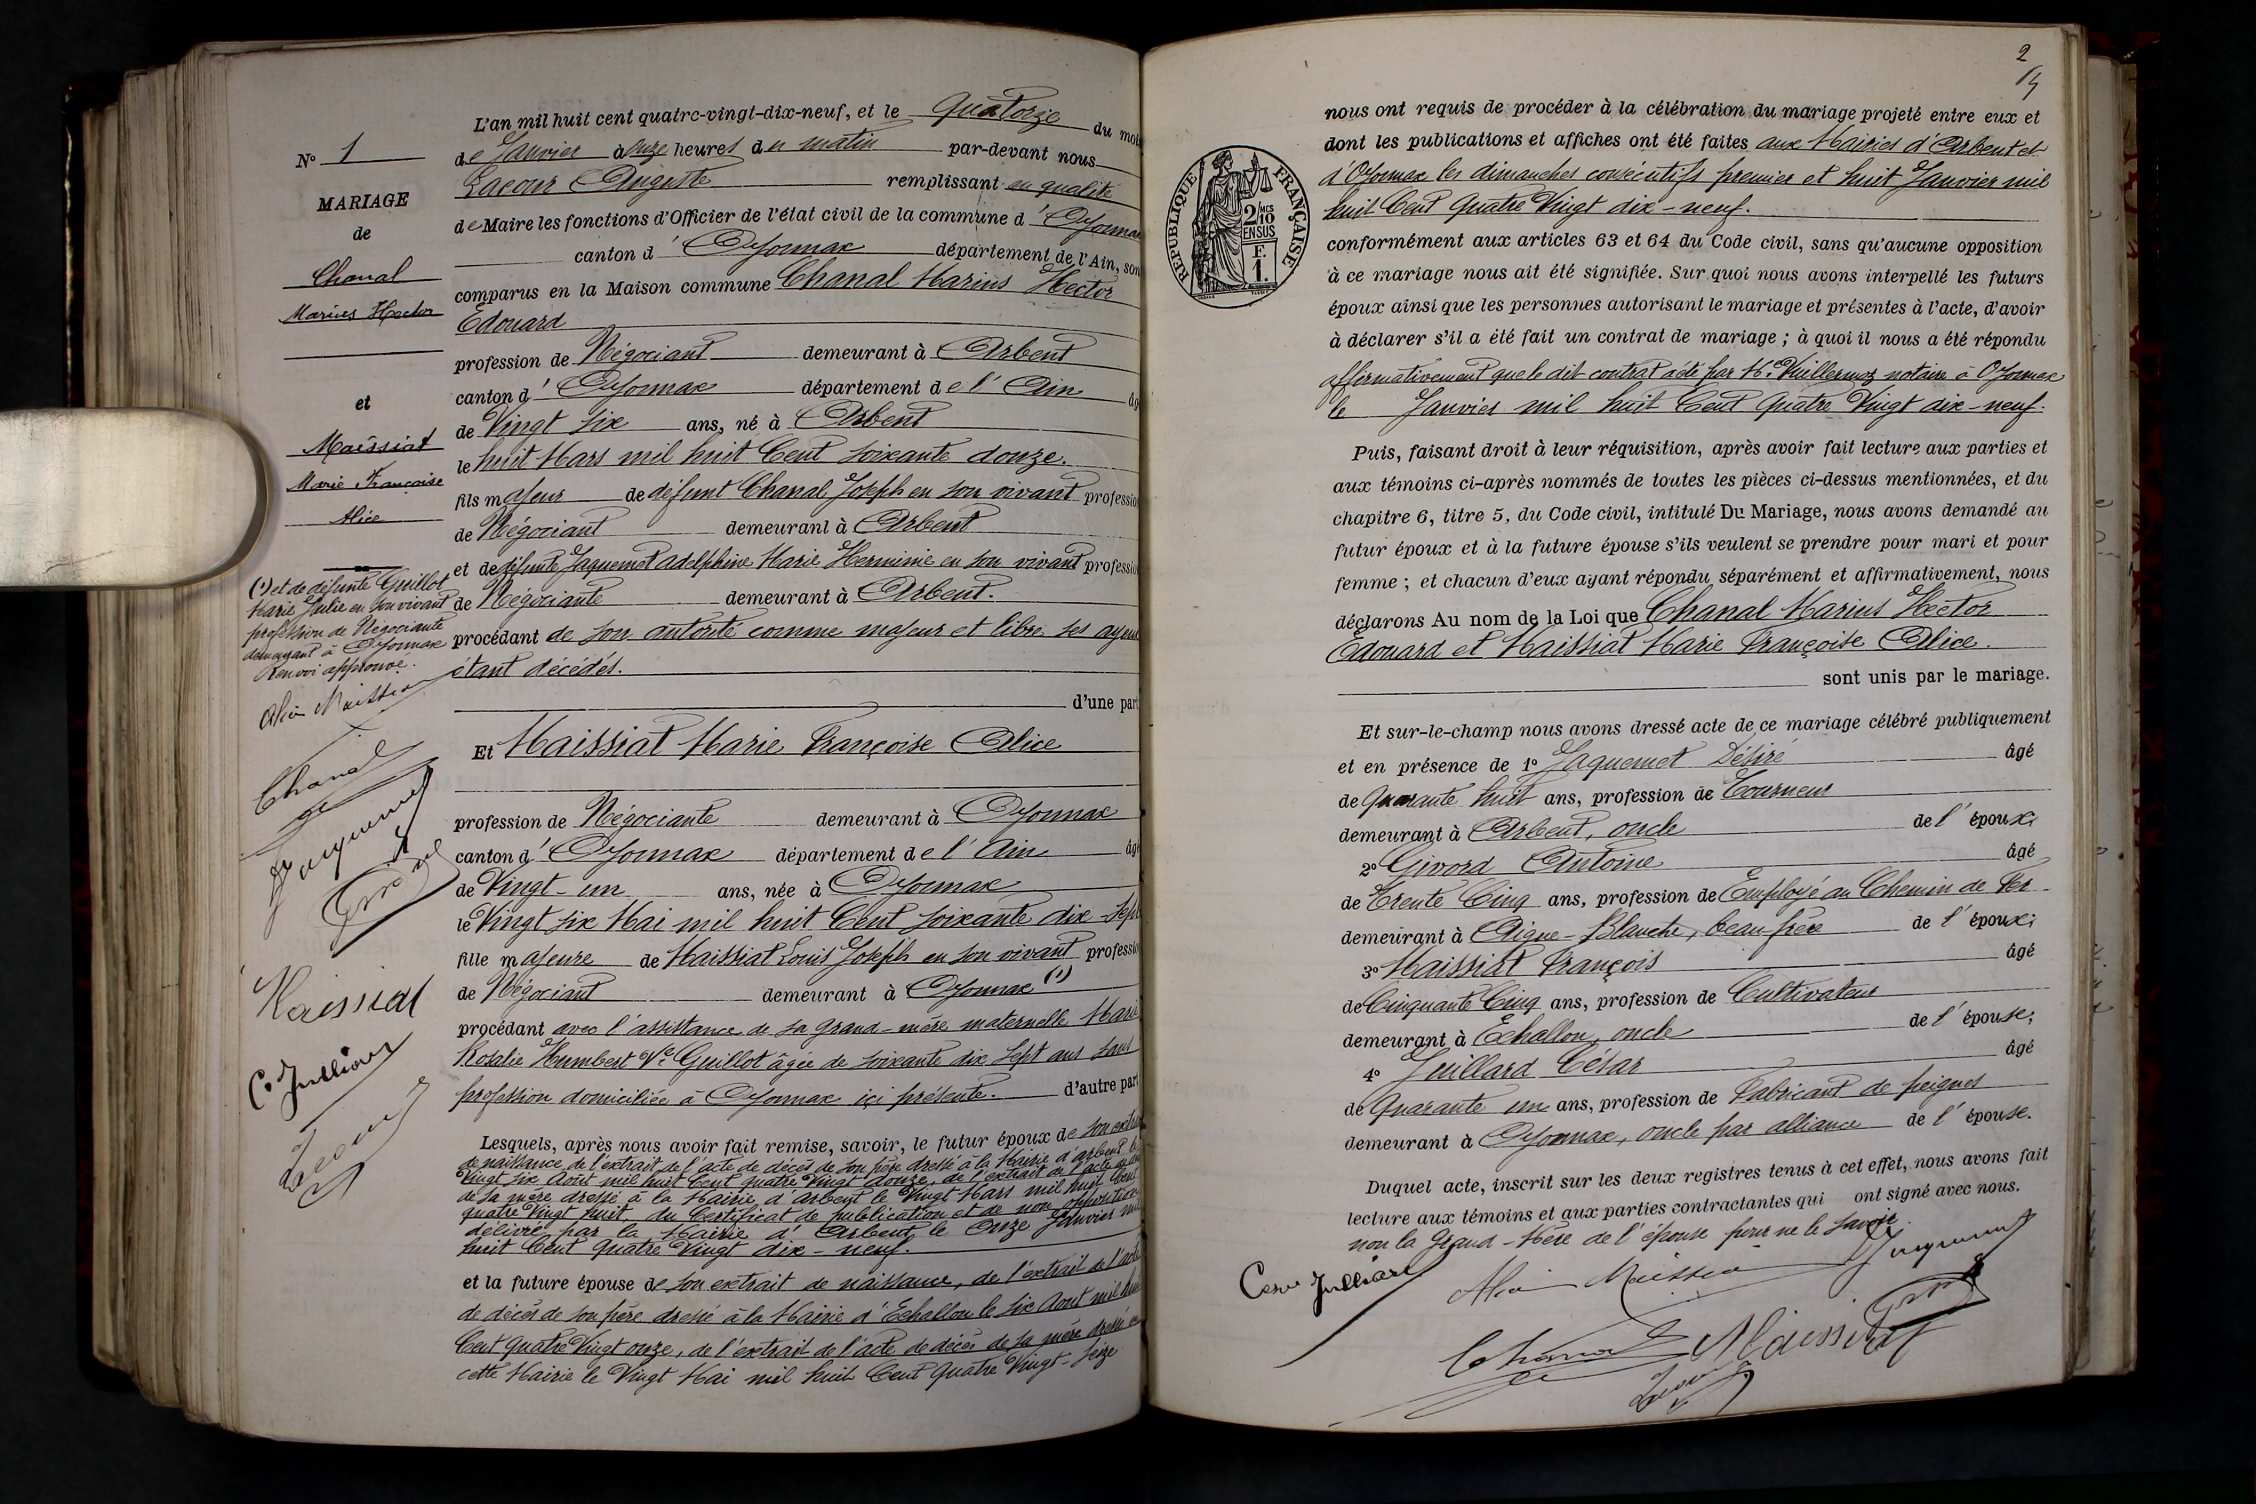 N° 1
MARIAGE
de
Chanal
Marius Hector
et
Maissiat
Marie Françoise
Alice
(1) et de défunte Guillot
Marie Julie en son vivant
profession de Négociante
demeurant à Oyonnax
Renvoi approuvé.
Alice Maissiat
Chanal
Jaquemet
Maissiat
C. Juillard
Lacour
L'an mil huit cent quatre-vingt-dix-neuf, et le quatorze du mois
de Janvier à onze heures du matin par-devant nous
Lacour Auguste remplissant en qualité
de Maire les fonctions d'Officier de l'état civil de la commune d'Oyonnax
canton d'Oyonnax département de l'Ain, son
comparus en la Maison commune Chanal Marius Hector
Edouard
profession de Négociant demeurant à Arbent
canton d'Oyonnax département de l'Ain âgé
de Vingt six ans, né à Arbent
le huit Mars mil huit Cent soixante douze.
fils majeur de défunt Chanal Joseph en son vivant profession
de Négociant demeurant à Arbent
et de défunte Jaquemet Adelphine Marie Herminie en son vivant profession
de Négociante demeurant à Arbent.
procédant de son autorité comme majeur et libre ses ayeux
étant décédés.
d'une part
Et Maissiat Marie Françoise Alice
profession de Négociante demeurant à Oyonnax
canton d'Oyonnax département de l'Ain âgé
de Vingt-un ans, née à Oyonnax
le Vingt six Mai mil huit Cent soixante dix-sept
fille majeure de Maissiat Louis Joseph en son vivant profession
de Négociant demeurant à Oyonnax (1)
procédant avec l'assistance de sa grand-mère maternelle Marie
Rosalie Humbert Ve Guillot âgée de soixante dix sept ans sans
profession domiciliée à Oyonnax ici présente. d'autre part
Lesquels, après nous avoir fait remise, savoir, le futur époux de son extrait
de naissance, de l'extrait de l'acte de décès de son père dressé à la Mairie d'Arbent le
Vingt six Août mil huit Cent quatre Vingt douze, de l'extrait de l'acte de décès
de sa mère dressé à la Mairie d'Arbent le Vingt Mars mil huit Cent
quatre Vingt huit, du Certificat de publication et de non opposition
délivré par la Mairie d'Arbent le Onze Janvier mil
huit Cent Quatre Vingt dix-neuf.
et la future épouse de son extrait de naissance, de l'extrait de l'acte
de décès de son père dressé à la Mairie d'Echallon le six Août mil huit
Cent quatre Vingt onze, de l'extrait de l'acte de décès de sa mère dressé en
cette Mairie le Vingt Mai mil huit Cent Quatre Vingt-seize
2
RÉPUBLIQUE FRANÇAISE
2 MES
10
EN SUS
F.
1.
nous ont requis de procéder à la célébration du mariage projeté entre eux et
dont les publications et affiches ont été faites aux Mairies d'Arbent et
d'Oyonnax les dimanches consécutifs premier et huit Janvier mil
huit Cent Quatre Vingt dix-neuf.
conformément aux articles 63 et 64 du Code civil, sans qu'aucune opposition
à ce mariage nous ait été signifiée. Sur quoi nous avons interpellé les futurs
époux ainsi que les personnes autorisant le mariage et présentes à l'acte, d'avoir
à déclarer s'il a été fait un contrat de mariage ; à quoi il nous a été répondu
affirmativement que le dit contrat acté par Me Vuillermoz notaire à Oyonnax
le Janvier mil huit Cent Quatre Vingt dix-neuf.
Puis, faisant droit à leur réquisition, après avoir fait lecture aux parties et
aux témoins ci-après nommés de toutes les pièces ci-dessus mentionnées, et du
chapitre 6, titre 5, du Code civil, intitulé Du Mariage, nous avons demandé au
futur époux et à la future épouse s'ils veulent se prendre pour mari et pour
femme ; et chacun d'eux ayant répondu séparément et affirmativement, nous
déclarons Au nom de la Loi que Chanal Marius Hector
Edouard et Maissiat Marie Françoise Alice.
sont unis par le mariage.
Et sur-le-champ nous avons dressé acte de ce mariage célébré publiquement
et en présence de 1° Jaquemet Désiré âgé
de Quarante huit ans, profession de Tourneur
demeurant à Arbent, oncle de l'époux;
2° Givord Antoine âgé
de Trente Cinq ans, profession de Employé au Chemin de Fer
demeurant à Aigue-Blanche, beau frère de l'époux;
3° Maissiat François âgé
de Cinquante Cinq ans, profession de Cultivateur
demeurant à Echallon, oncle de l'épouse;
4° Juillard César âgé
de Quarante un ans, profession de Fabricant de peignes
demeurant à Oyonnax, oncle par alliance de l'épouse.
Duquel acte, inscrit sur les deux registres tenus à cet effet, nous avons fait
lecture aux témoins et aux parties contractantes qui ont signé avec nous.
non la Grand-Mère de l'épouse pour ne le savoir.
César Juillard Alice Maissiat Jaquemet
Chanal Maissiat
Lacour